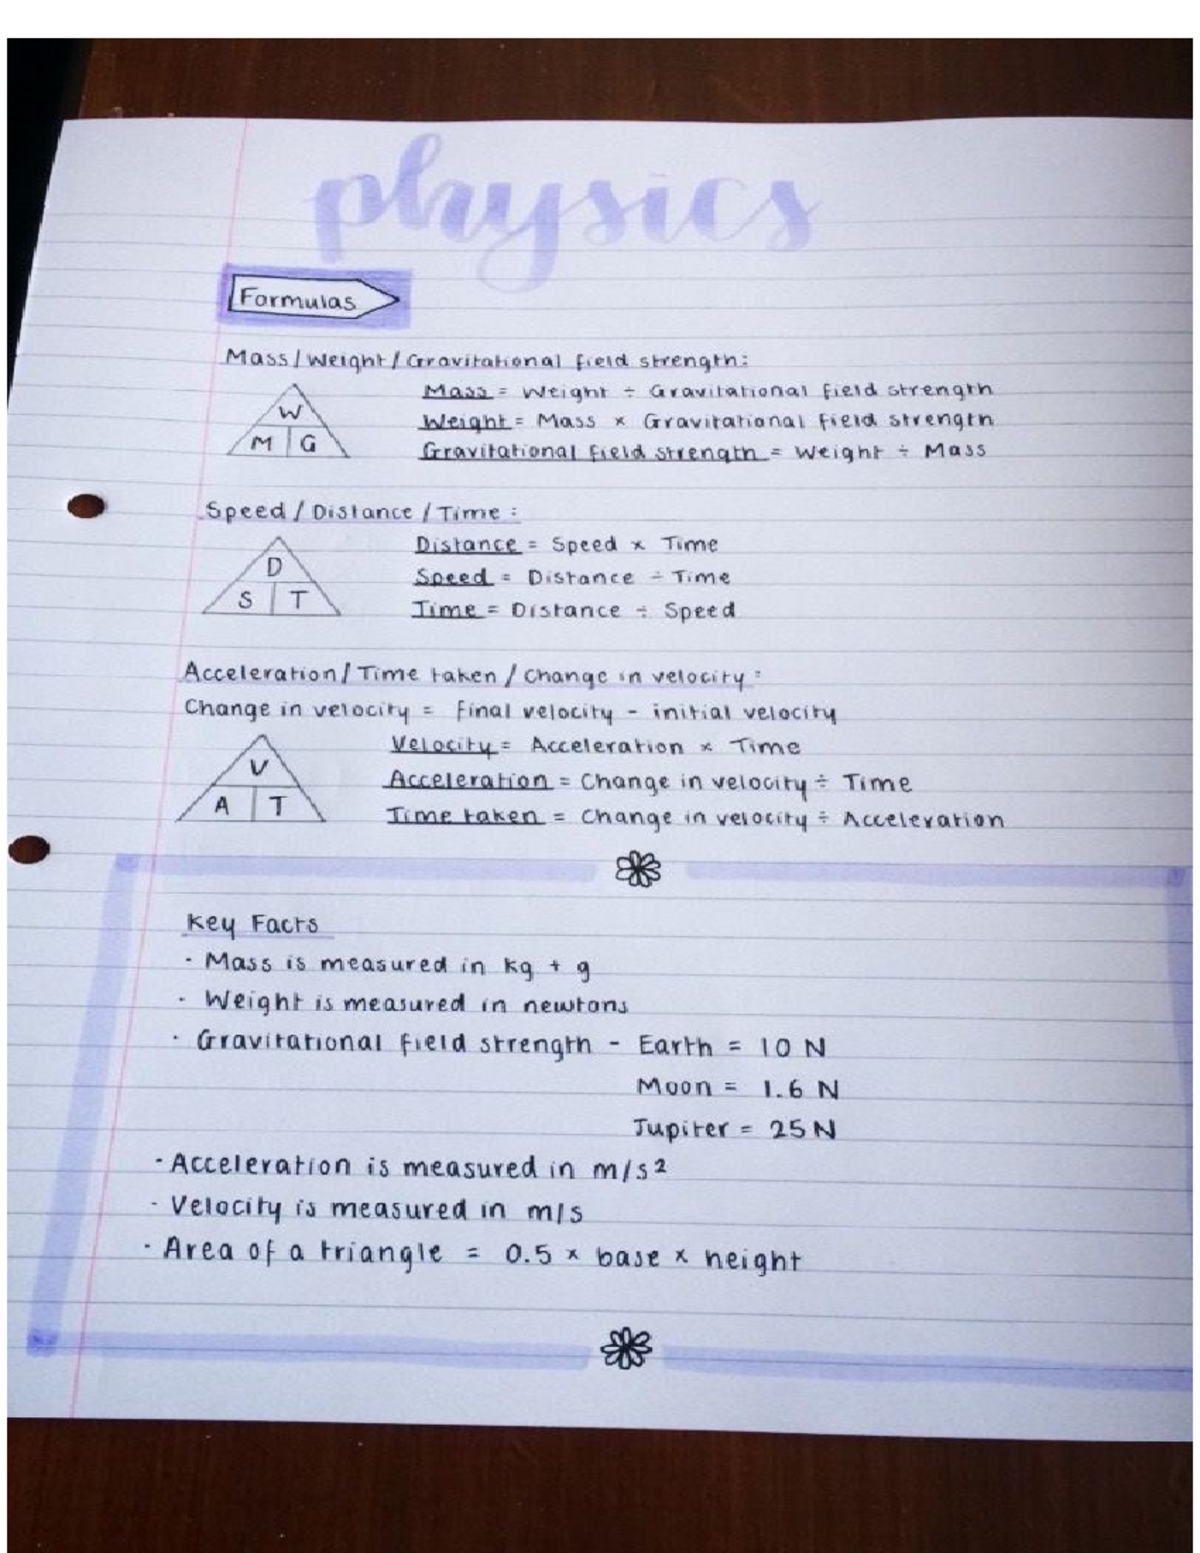 physics
Formulas
Mass/Weight/Gravitational field strength:
W
M G
Mass = Weight ÷ Gravitational field strength
Weight = Mass × Gravitational field strength
Gravitational field strength = Weight ÷ Mass
Speed/Distance/Time:
D
S T
Distance = Speed × Time
Speed = Distance ÷ Time
Time = Distance ÷ Speed
Acceleration/Time taken/Change in velocity:
Change in velocity = final velocity - initial velocity
V
A T
Velocity = Acceleration × Time
Acceleration = Change in velocity ÷ Time
Time taken = Change in velocity ÷ Acceleration
Key Facts
· Mass is measured in kg + g
· Weight is measured in newtons
· Gravitational field strength - Earth = 10 N
Moon = 1.6 N
Jupiter = 25 N
· Acceleration is measured in m/s2
· Velocity is measured in m/s
· Area of a triangle = 0.5 × base × height